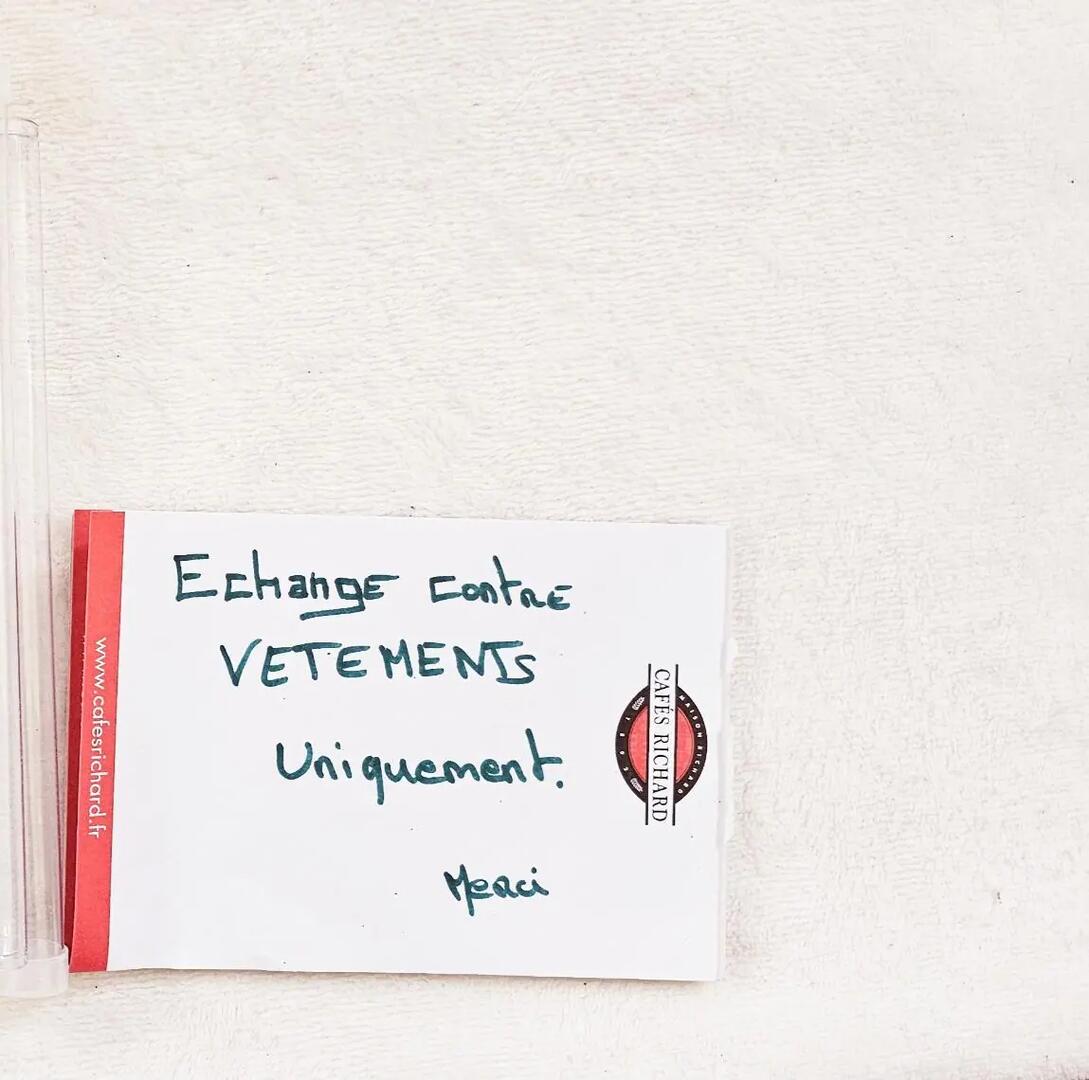 Echange contre
VETEMENTS
Uniquement.
Merci
www.cafesrichard.fr
CAFÉS RICHARD
MAISON RICHARD